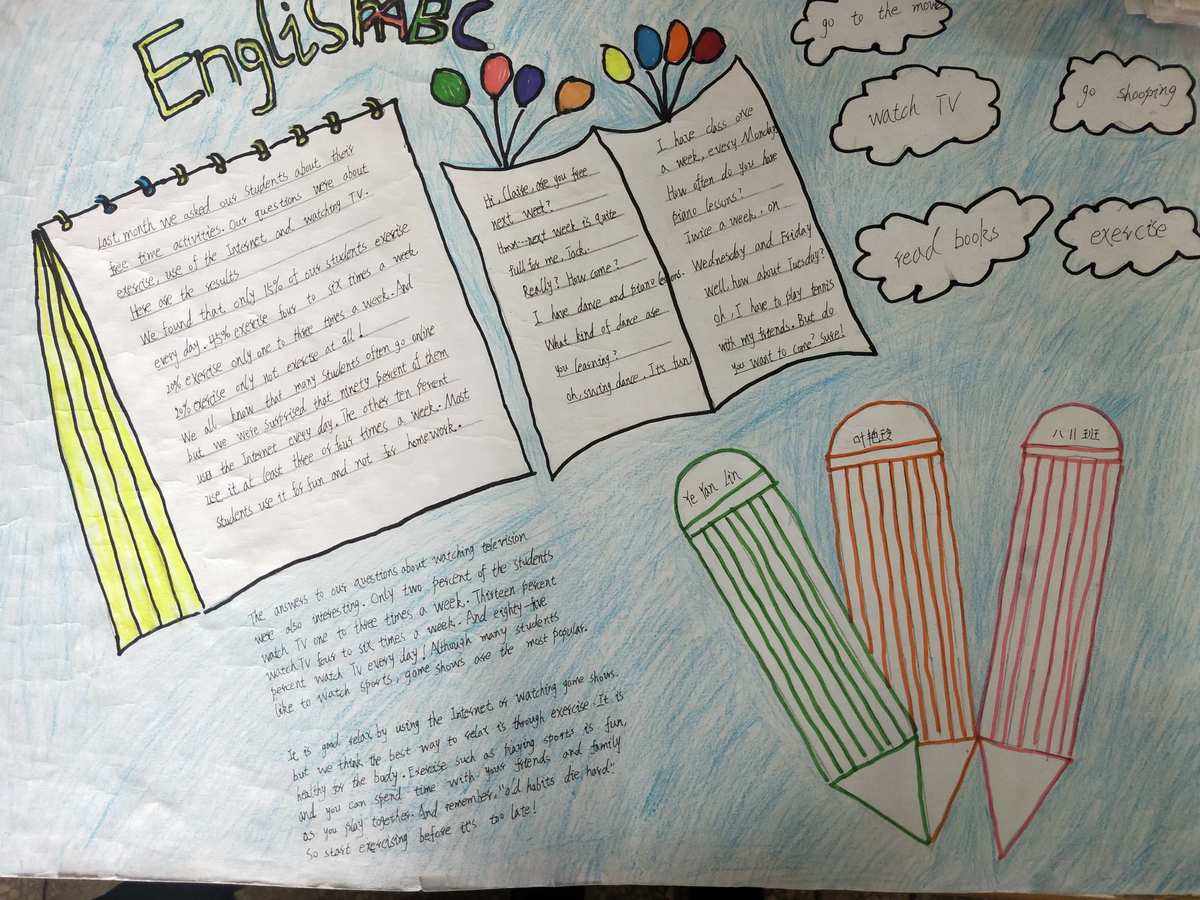 English ABC
Last month we asked our students about their
free time activities. Our questions were about
exercise, use of the Internet, and watching TV.
Here are the results
We found that only 15% of our students exercise
every day. 45% exercise four to six times a week
20% exercise only one to three times a week. And
20% exercise only not exercise at all!
We all know that many students often go online
but we were surprised that ninety percent of them
use the Internet every day. The other ten percent
use it at least three or four times a week. Most
students use it for fun and not for homework.
Hi, Claire, are you free
next week?
Hmm... next week is quite
full for me, Jack.
Really? How come?
I have dance and piano lessons.
What kind of dance are
you learning?
oh, swing dance. It's fun!
I have class once
a week, every Monday
How often do you have
piano lessons?
Twice a week. on
Wednesday and Friday
well, how about Tuesday?
oh, I have to play tennis
with my friends. But do
you want to come? Sure!
go to the movie
watch TV
go shooping
read books
exercise
The answers to our questions about watching television
were also interesting. Only two percent of the students
watch TV one to three times a week. Thirteen percent
watch TV four to six times a week. And eighty-five
percent watch TV every day! Although many students
like to watch sports, game shows are the most popular.
It is good relax by using the Internet or watching game shows.
but we think the best way to relax is through exercise. It is
healthy for the body. Exercise such as playing sports is fun,
and you can spend time with your friends and family
as you play together. And remember, "old habits die hard".
So start exercising before it's too late!
Ye Yan Lin
叶艳玲
八11班